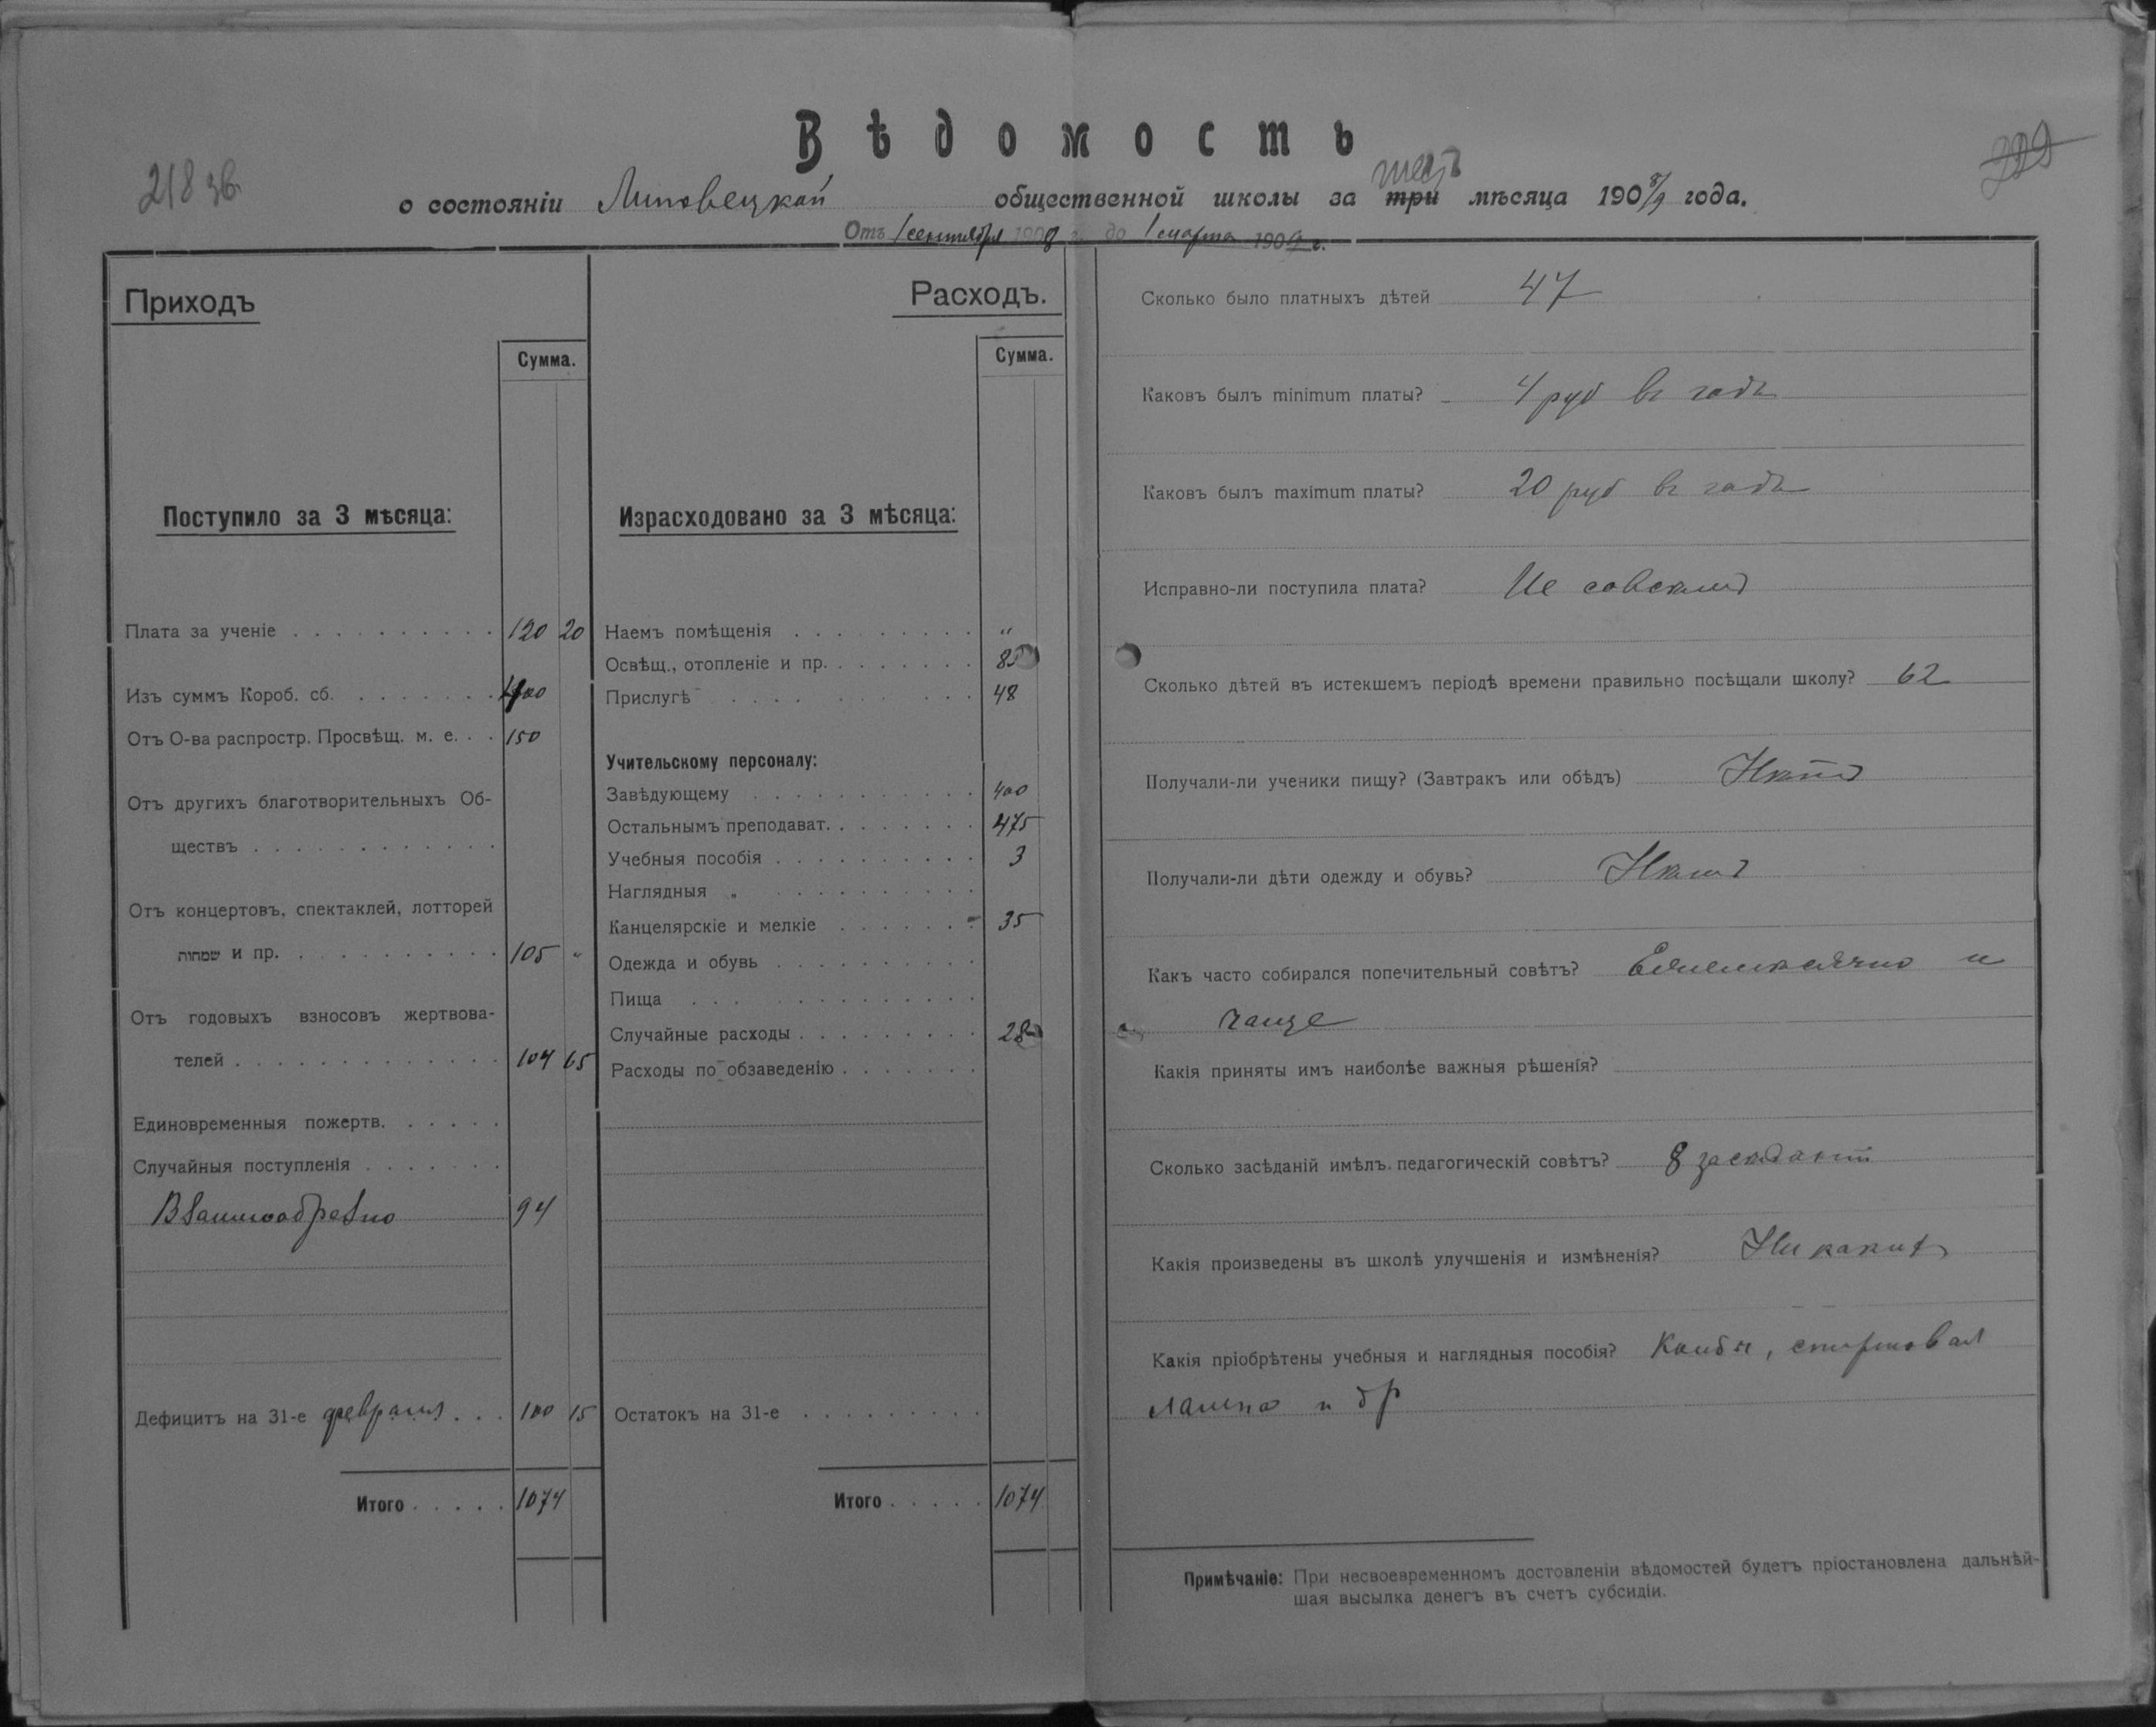 Вѣдомость
218 зв.
о состояніи Липовецкой общественной школы за три шесть мѣсяца 1908/9 года.
Отъ 1 сентября 1908 г. до 1 марта 1909 г.
Приходъ
Сумма.
Поступило за 3 мѣсяца:
Плата за ученіе . . . . . . . . . . 120 20
Изъ суммъ Короб. сб. . . . . . . . 400
Отъ О-ва распростр. Просвѣщ. м. е. . . 150
Отъ другихъ благотворительныхъ Об-
ществъ . . . . . . . . . . . .
Отъ концертовъ, спектаклей, лотторей
שמחות и пр. . . . . . . . . . . 105 "
Отъ годовыхъ взносовъ жертвова-
телей . . . . . . . . . . . . . 104 65
Единовременныя пожертв. . . . . .
Случайныя поступленія . . . . . . .
Взаимообразно 94
Дефицитъ на 31-е февраля . . . 100 15
Итого . . . . . 1074
Расходъ.
Сумма.
Израсходовано за 3 мѣсяца:
Наемъ помѣщенія . . . . . . . . . "
Освѣщ., отопленіе и пр. . . . . . . . 85
Прислугѣ . . . . . . . . . . 48
Учительскому персоналу:
Завѣдующему . . . . . . . . . . . 400
Остальнымъ преподават. . . . . . . . 475
Учебныя пособія . . . . . . . . . . 3
Наглядныя „ . . . . . . . . . .
Канцелярскіе и мелкіе . . . . . . . 35
Одежда и обувь . . . . . . . . . .
Пища . . . . . . . . . . . . .
Случайные расходы . . . . . . . . . 28
Расходы по обзаведенію . . . . . . .
Остатокъ на 31-е . . . . . . . . .
Итого . . . . . 1074
Сколько было платныхъ дѣтей 47
Каковъ былъ minimum платы? 4 руб въ годъ
Каковъ былъ maximum платы? 20 руб въ годъ
Исправно-ли поступила плата? Не совсѣмъ
Сколько дѣтей въ истекшемъ періодѣ времени правильно посѣщали школу? 62
Получали-ли ученики пищу? (Завтракъ или обѣдъ) Нѣтъ
Получали-ли дѣти одежду и обувь? Нѣтъ
Какъ часто собирался попечительный совѣтъ? Ежемѣсячно и
чаще
Какія приняты имъ наиболѣе важныя рѣшенія?
Сколько засѣданій имѣлъ педагогическій совѣтъ? 8 засѣданій
Какія произведены въ школѣ улучшенія и измѣненія? Никакихъ
Какія пріобрѣтены учебныя и наглядныя пособія? Колбы, спиртовая
лампа и др
Примѣчаніе: При несвоевременномъ достовленіи вѣдомостей будетъ пріостановлена дальнѣй-
шая высылка денегъ въ счетъ субсидіи.